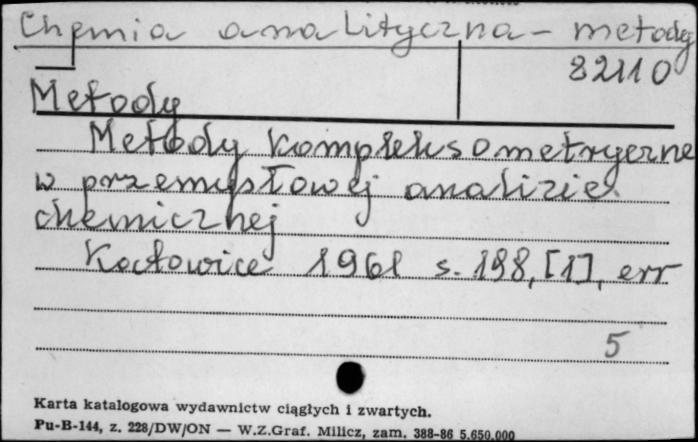 Chemia analityczna - metody
82110
Metody
Metody kompleksometryczne
w przemysłowej analizie
chemicznej
Katowice 1961 s. 198, [1], err
5
Karta katalogowa wydawnictw ciągłych i zwartych.
Pu-B-144, z. 228/DW/ON — W.Z.Graf. Milicz, zam. 388-86 5.650.000